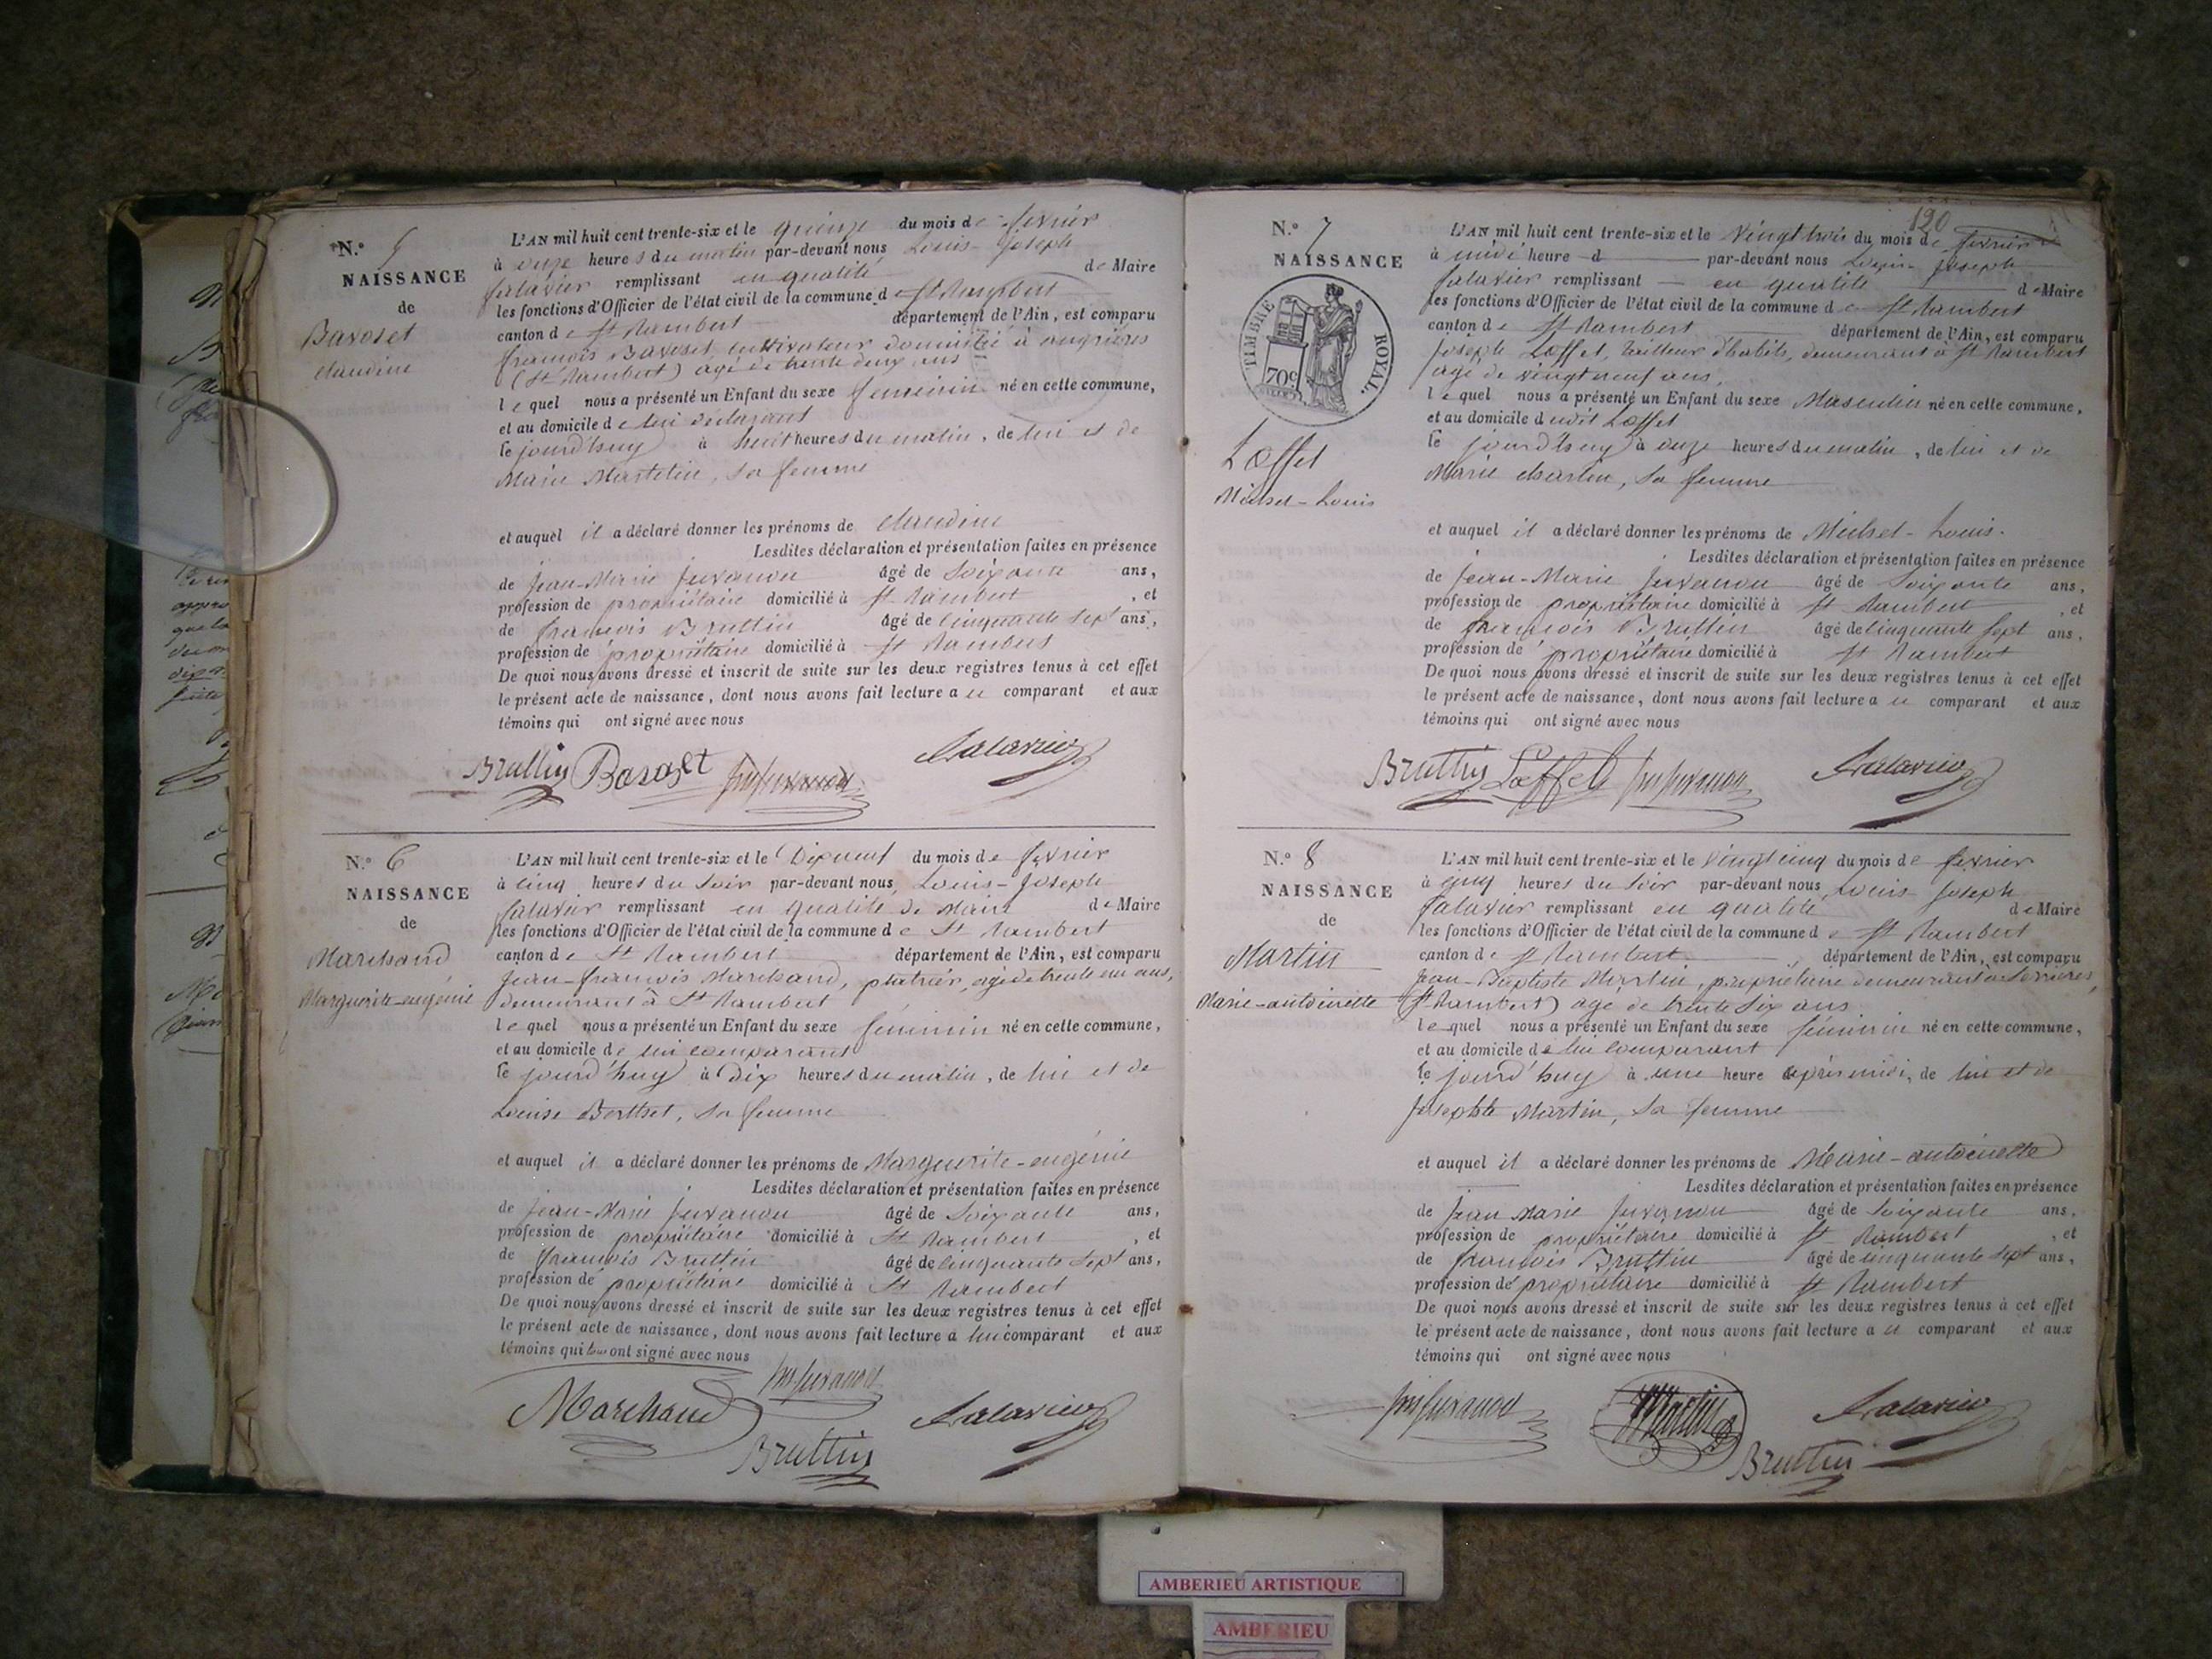 N.º 5
NAISSANCE
de
Bavoset
claudine
L'AN mil huit cent trente-six et le quinze du mois de février
à onze heures du matin par-devant nous Louis-Joseph
falavier remplissant en qualité de Maire
les fonctions d'Officier de l'état civil de la commune de St Rambert
canton de St Rambert département de l'Ain, est comparu
françois Bavoset, cultivateur domicilié à angrières
(St Rambert) agé de trente deux ans
lequel nous a présenté un Enfant du sexe femeinin né en cette commune,
et au domicile de lui déclarant
le jourd'huy à huit heures du matin, de lui et de
Marie Martelin, sa femme
et auquel il a déclaré donner les prénoms de claudine
Lesdites déclaration et présentation faites en présence
de Jean-Marie Juvanon âgé de Soixante ans,
profession de propriétaire domicilié à St Rambert, et
de françois Bruttin âgé de cinquante sept ans,
profession de propriétaire domicilié à St Rambert
De quoi nous avons dressé et inscrit de suite sur les deux registres tenus à cet effet
le présent acte de naissance, dont nous avons fait lecture a ce comparant et aux
témoins qui ont signé avec nous
Bruttin Bavoset jm juvanon falavier
N.º 6
NAISSANCE
de
Marchand
Marguerite-eugénie
L'AN mil huit cent trente-six et le Dixneuf du mois de février
à cinq heures du Soir par-devant nous, Louis-Joseph
falavier remplissant en qualité de Maire de Maire
les fonctions d'Officier de l'état civil de la commune de St Rambert
canton de St Rambert département de l'Ain, est comparu
Jean-françois Marchand, platrier, agé de trente un ans,
demeurant à St Rambert
lequel nous a présenté un Enfant du sexe féminin né en cette commune,
et au domicile de lui comparant
le jourd'huy à Dix heures du matin, de lui et de
Louise Berthet, sa femme
et auquel il a déclaré donner les prénoms de Marguerite-eugénie
Lesdites déclaration et présentation faites en présence
de Jean-Marie Juvanon âgé de Soixante ans,
profession de propriétaire domicilié à St Rambert, et
de françois Bruttin âgé de cinquante sept ans,
profession de propriétaire domicilié à St Rambert
De quoi nous avons dressé et inscrit de suite sur les deux registres tenus à cet effet
le présent acte de naissance, dont nous avons fait lecture à lui comparant et aux
témoins qui tous ont signé avec nous
jm juvanon
Marchand falavier
Bruttin
120
N.º 7
NAISSANCE
TIMBRE ROYAL.
70c
Lœffel
Michel-Louis
L'AN mil huit cent trente-six et le Vingt trois du mois de février
à midi heure d par-devant nous Louis-Joseph
falavier remplissant en qualité de Maire
les fonctions d'Officier de l'état civil de la commune de St Rambert
canton de St Rambert département de l'Ain, est comparu
Joseph Lœffel, tailleur d'habits, demeurant à St Rambert
agé de vingt neuf ans,
lequel nous a présenté un Enfant du sexe Masculin né en cette commune,
et au domicile dudit Lœffel
le jourd'huy à onze heures du matin, de lui et de
Marie charlin, sa femme
et auquel il a déclaré donner les prénoms de Michel-Louis.
Lesdites déclaration et présentation faites en présence
de Jean-Marie Juvanon âgé de Soixante ans,
profession de propriétaire domicilié à St Rambert, et
de françois Bruttin âgé de cinquante sept ans,
profession de propriétaire domicilié à St Rambert
De quoi nous avons dressé et inscrit de suite sur les deux registres tenus à cet effet
le présent acte de naissance, dont nous avons fait lecture a ce comparant et aux
témoins qui ont signé avec nous
Bruttin Lœffel jm juvanon falavier
N.º 8
NAISSANCE
de
Martin
Marie-antoinette
L'AN mil huit cent trente-six et le Vingt cinq du mois de février
à cinq heures du Soir par-devant nous, Louis Joseph
falavier remplissant en qualité de Maire
les fonctions d'Officier de l'état civil de la commune de St Rambert
canton de St Rambert, département de l'Ain, est comparu
Jean-Baptiste Martin, propriétaire demeurant à Serrières,
(St Rambert) agé de trente Six ans
lequel nous a présenté un Enfant du sexe féminin né en cette commune,
et au domicile de lui comparant
le jourd'huy à une heure après midi, de lui et de
Josephte Martin, sa femme
et auquel il a déclaré donner les prénoms de Marie-antoinette
Lesdites déclaration et présentation faites en présence
de Jean Marie Juvanon âgé de Soixante ans,
profession de propriétaire domicilié à St Rambert, et
de françois Bruttin âgé de cinquante sept ans,
profession de propriétaire domicilié à St Rambert
De quoi nous avons dressé et inscrit de suite sur les deux registres tenus à cet effet
le présent acte de naissance, dont nous avons fait lecture a ce comparant et aux
témoins qui ont signé avec nous
jm juvanon Martin falavier
Bruttin
AMBERIEU ARTISTIQUE
AMBERIEU